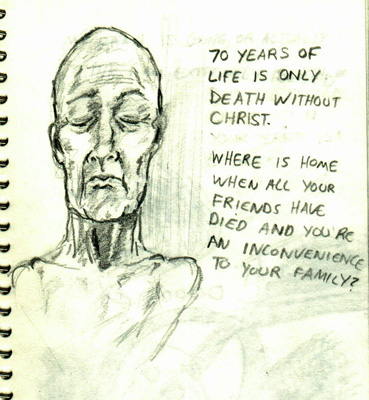 70 YEARS OF
LIFE IS ONLY
DEATH WITHOUT
CHRIST.
WHERE IS HOME
WHEN ALL YOUR
FRIENDS HAVE
DIED AND YOU'RE
AN INCONVENIENCE
TO YOUR FAMILY?